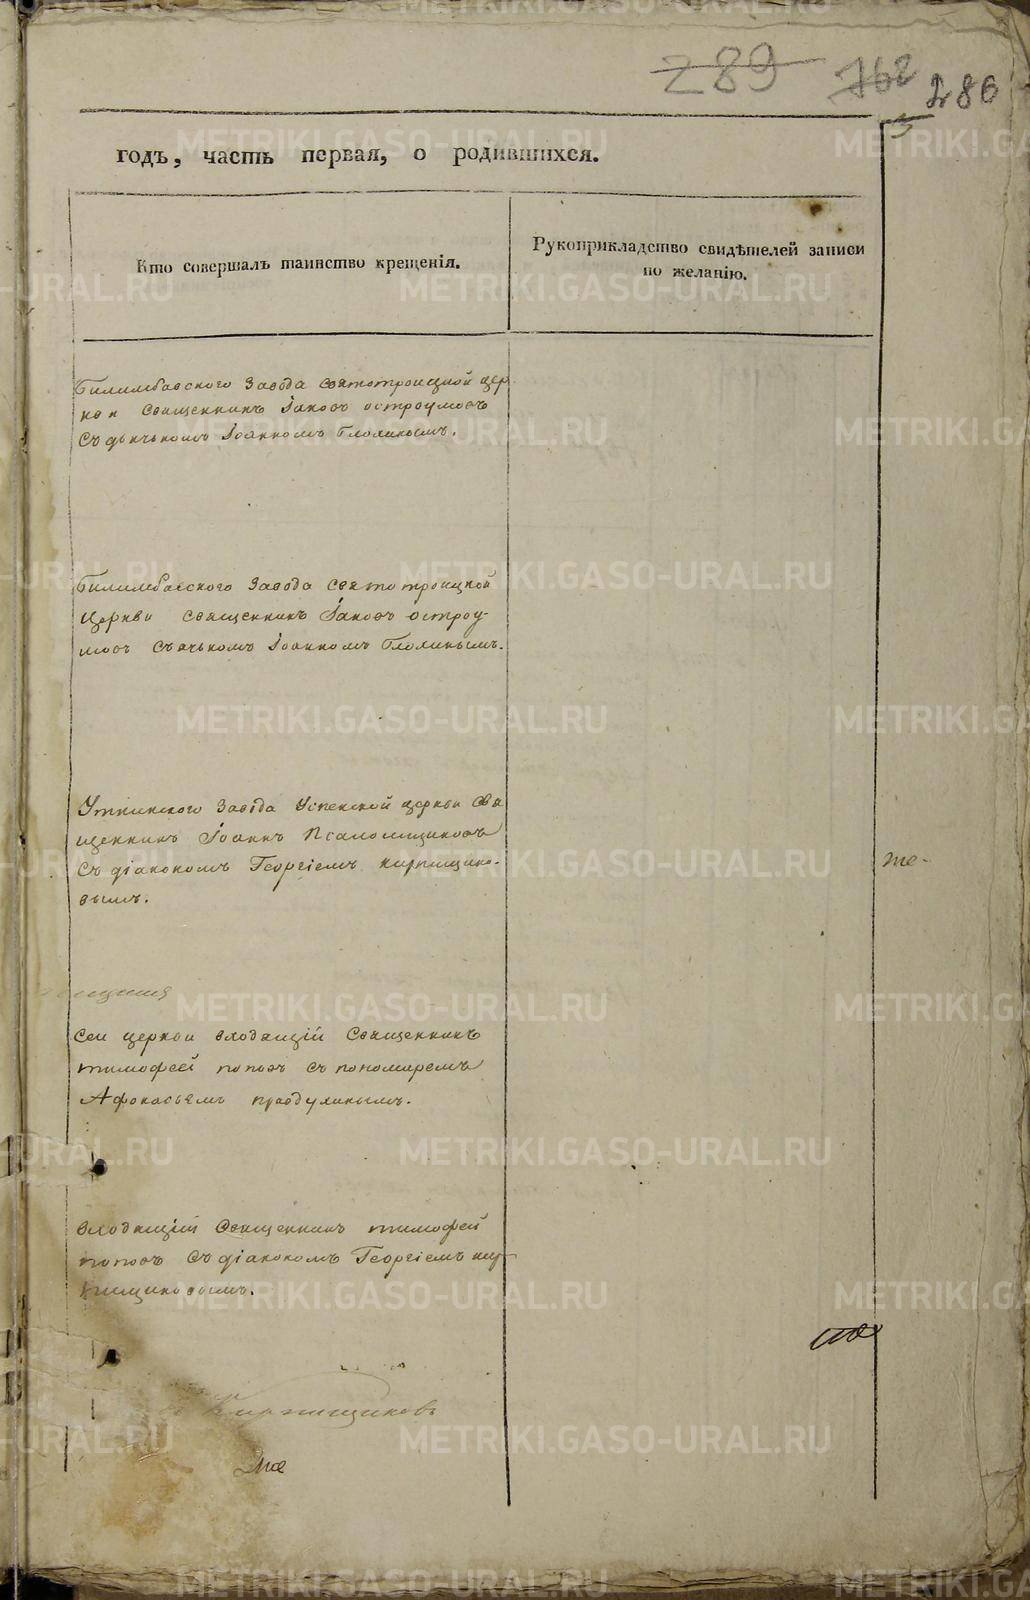 289 762 286
годъ, часть первая, о родившихся.
Кто совершалъ таинство крещенія.
Рукоприкладство свидѣтелей записи
по желанію.
Билимбаевского Завода святотроицкой цер
кви священникъ Іаковъ остроумовъ
съ дьячькомъ Іоанномъ Бло
Билимбаевского Завода святотроицкой
церкви священникъ Іаковъ остроу-
мовъ съ ячькомъ Іоанномъ
Уткинского Завода Успенской церкви Свя
щенникъ Іоаннъ Псаломщиковъ
съ діакономъ Георгіемъ кирпищико-
вымъ.
те-
сей церкви Священникъ
тимофей поповъ съ пономаремъ
Афонасьемъ
Священникъ тимофей
поповъ съ діакономъ Георгіемъ кир
пищиковымъ.
Кирпищиковъ
METRIKI.GASO-URAL.RU